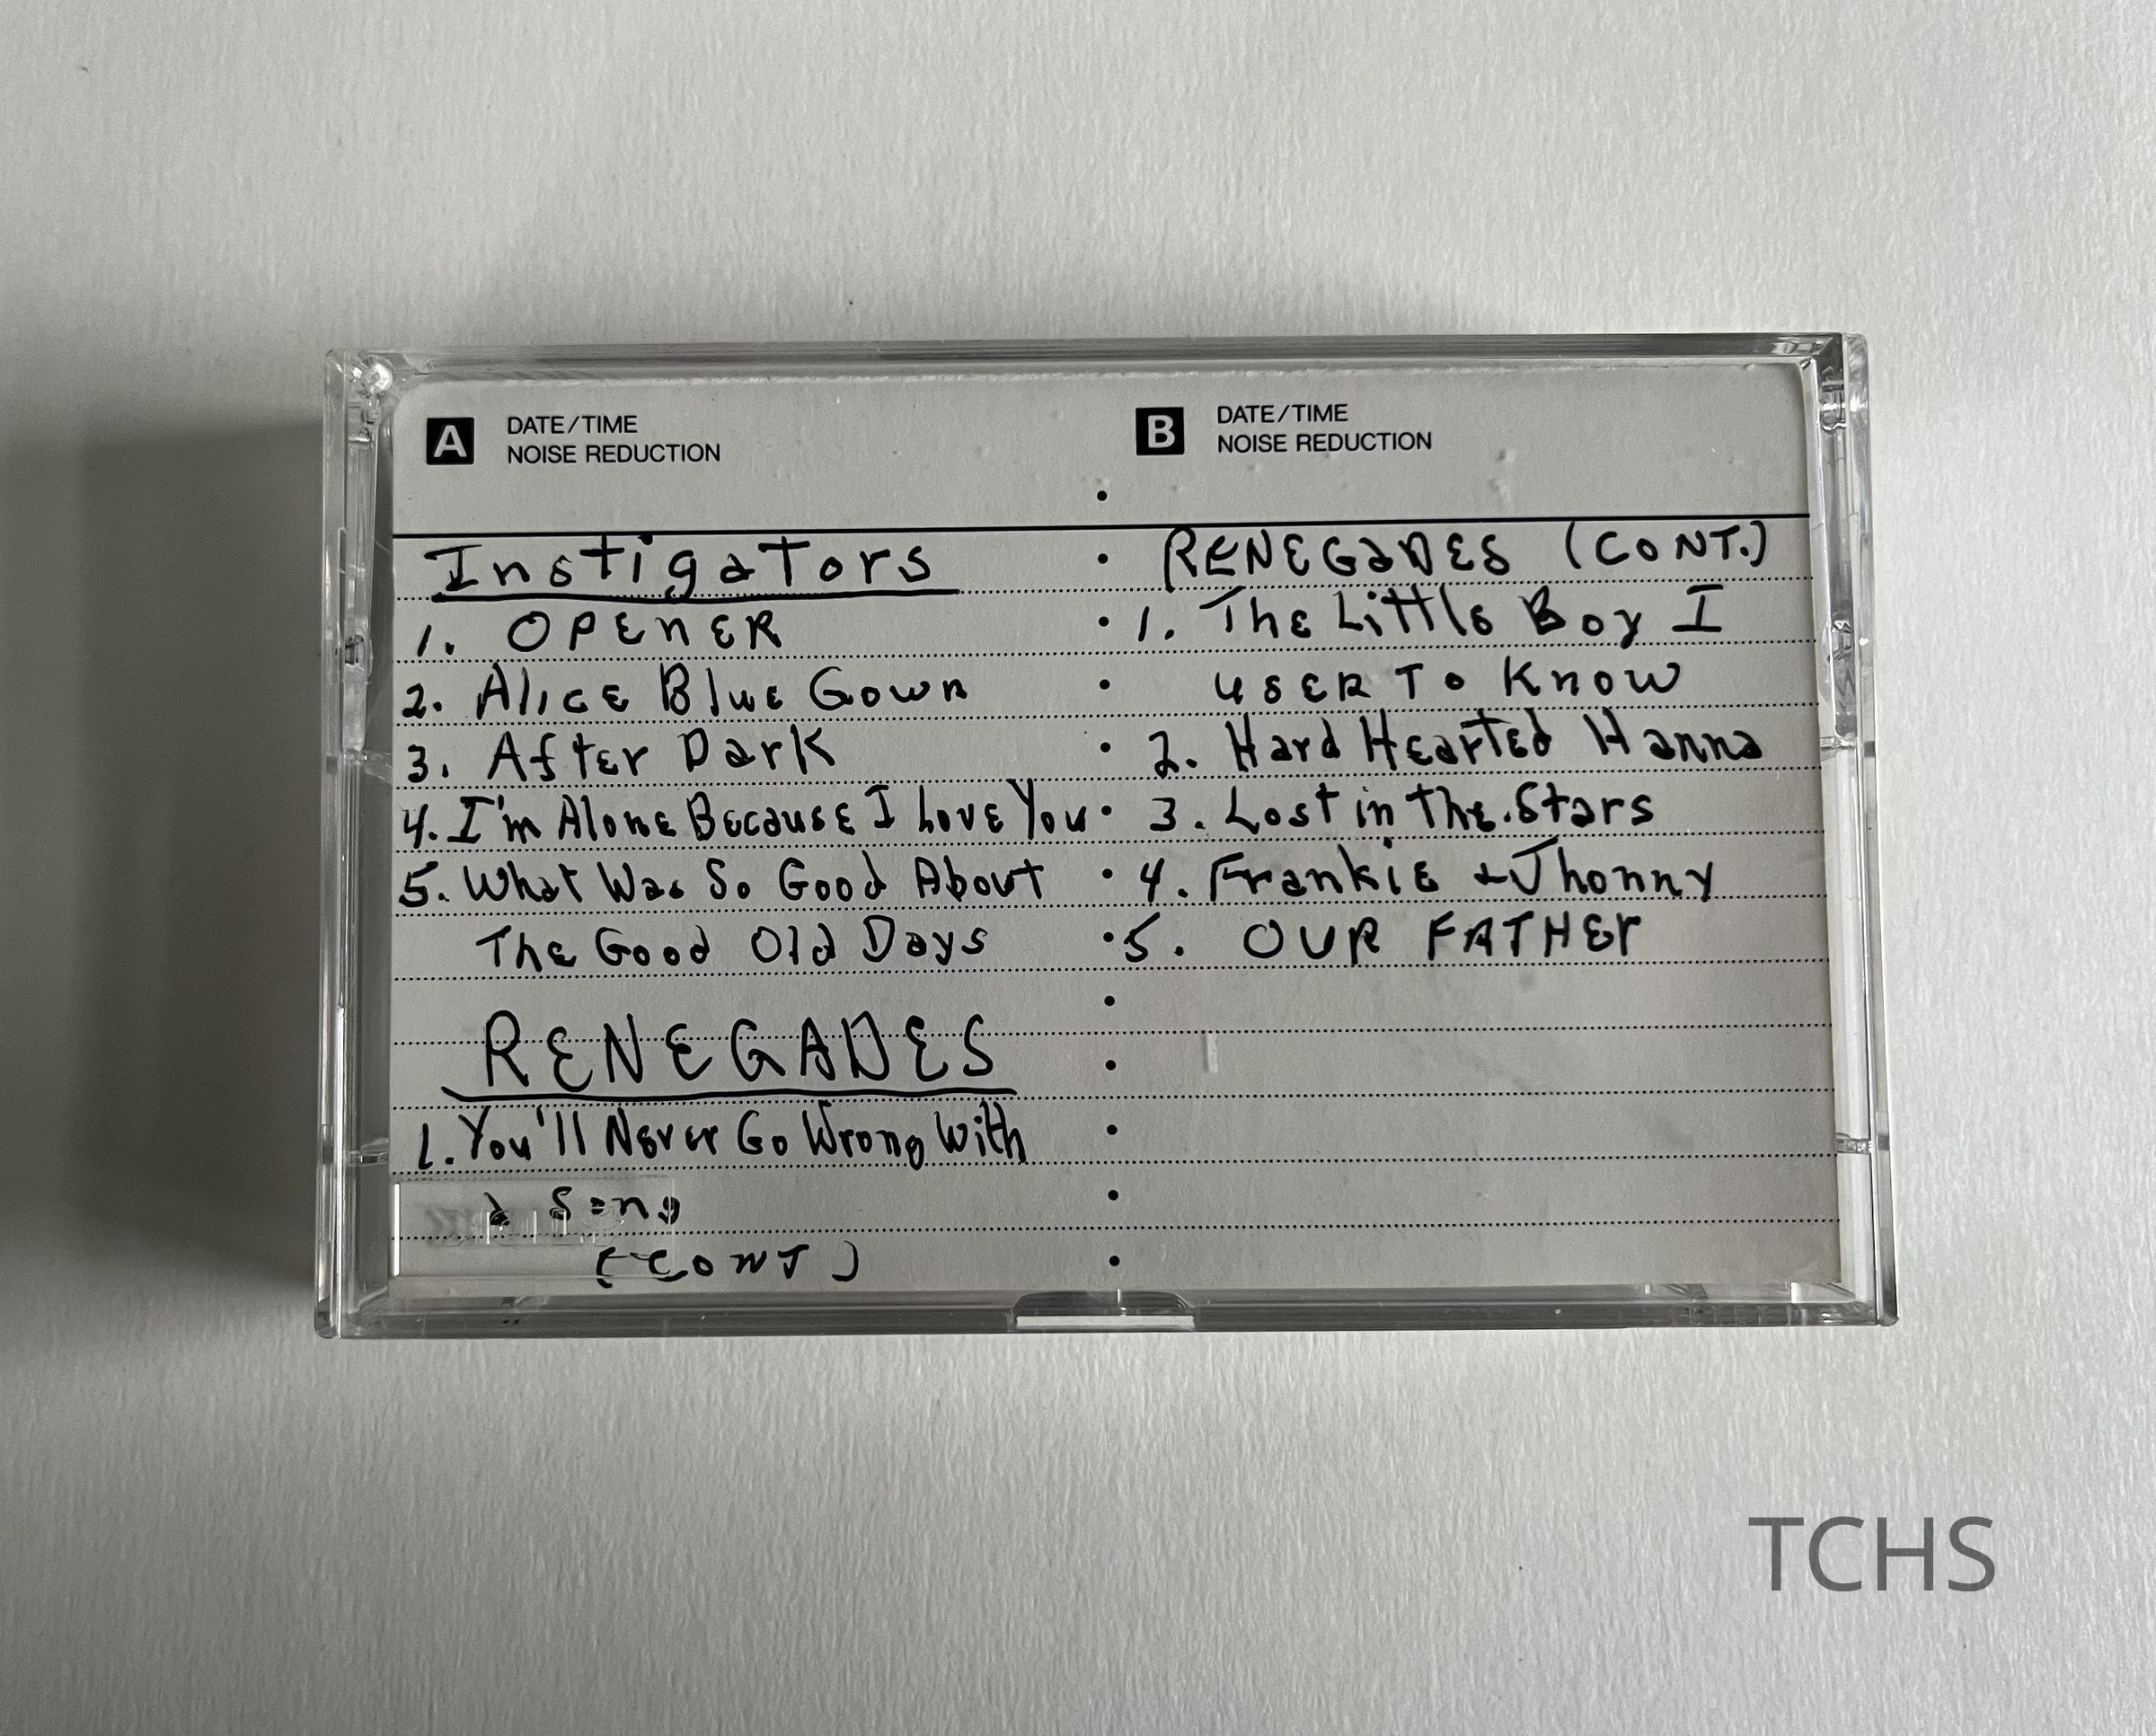 A DATE/TIME
NOISE REDUCTION
Instigators
1. OPENER
2. Alice Blue Gown
3. After Dark
4. I'm Alone Because I Love You
5. What Was So Good About
The Good Old Days
RENEGADES
1. You'll Never Go Wrong With
a Song
(CONT)
B DATE/TIME
NOISE REDUCTION
RENEGADES (CONT.)
1. The Little Boy I
USER To Know
2. Hard Hearted Hanna
3. Lost in The Stars
4. Frankie + Jhonny
5. OUR FATHER
TCHS